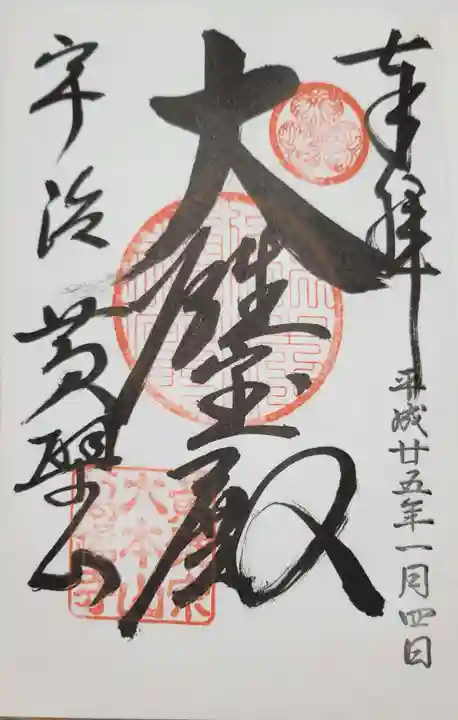 奉拝
平成廿五年一月四日
大雄宝殿
宇治
黄檗山
黄檗宗
大本山
萬福寺